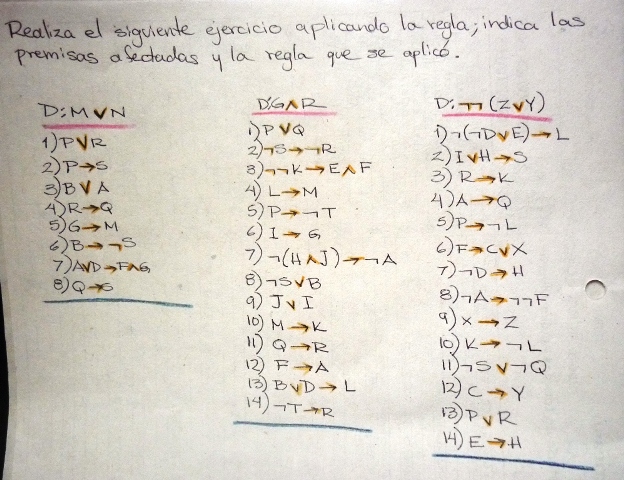 Realiza el siguiente ejercicio aplicando la regla; indica las
premisas afectadas y la regla que se aplicó.
D: M ∨ N
1) P ∨ R
2) P → S
3) B ∨ A
4) R → Q
5) G → M
6) B → ¬S
7) A∨D → F∧G
8) Q → S
D: G ∧ R
1) P ∨ Q
2) ¬S → ¬R
3) ¬¬K → E ∧ F
4) L → M
5) P → ¬T
6) I → G
7) ¬(H ∧ J) → ¬A
8) ¬S ∨ B
9) J ∨ I
10) M → K
11) Q → R
12) F → A
13) B ∨ D → L
14) ¬T → R
D: ¬¬(Z ∨ Y)
1) ¬(¬D ∨ E) → L
2) I ∨ H → S
3) R → K
4) A → Q
5) P → ¬L
6) F → C ∨ X
7) ¬D → H
8) ¬A → ¬¬F
9) X → Z
10) K → ¬L
11) ¬S ∨ ¬Q
12) C → Y
13) P ∨ R
14) E → H